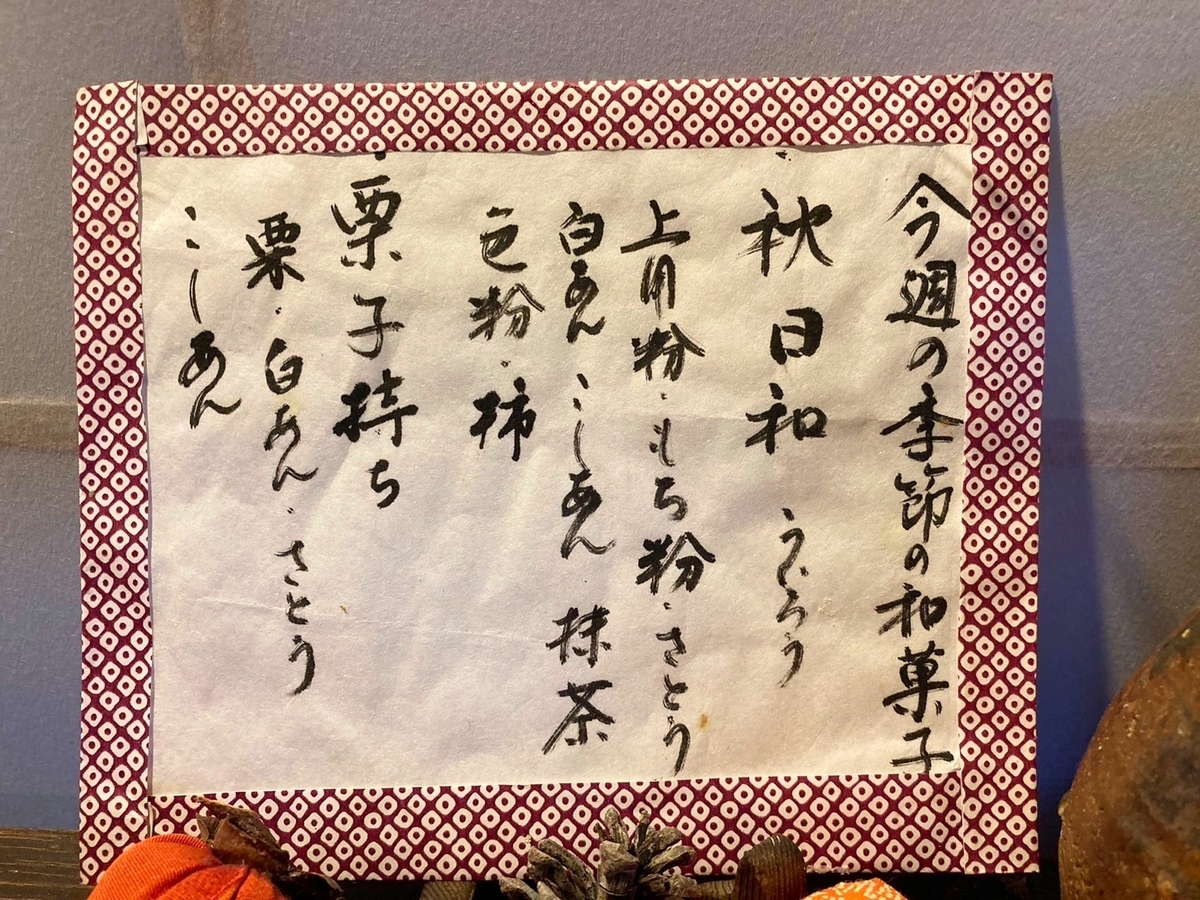 今週の季節の和菓子
・秋日和 ういろう
上用粉・もち粉・さとう
白あん こしあん 抹茶
色粉・柿
・栗子持ち
栗・白あん・さとう
こしあん